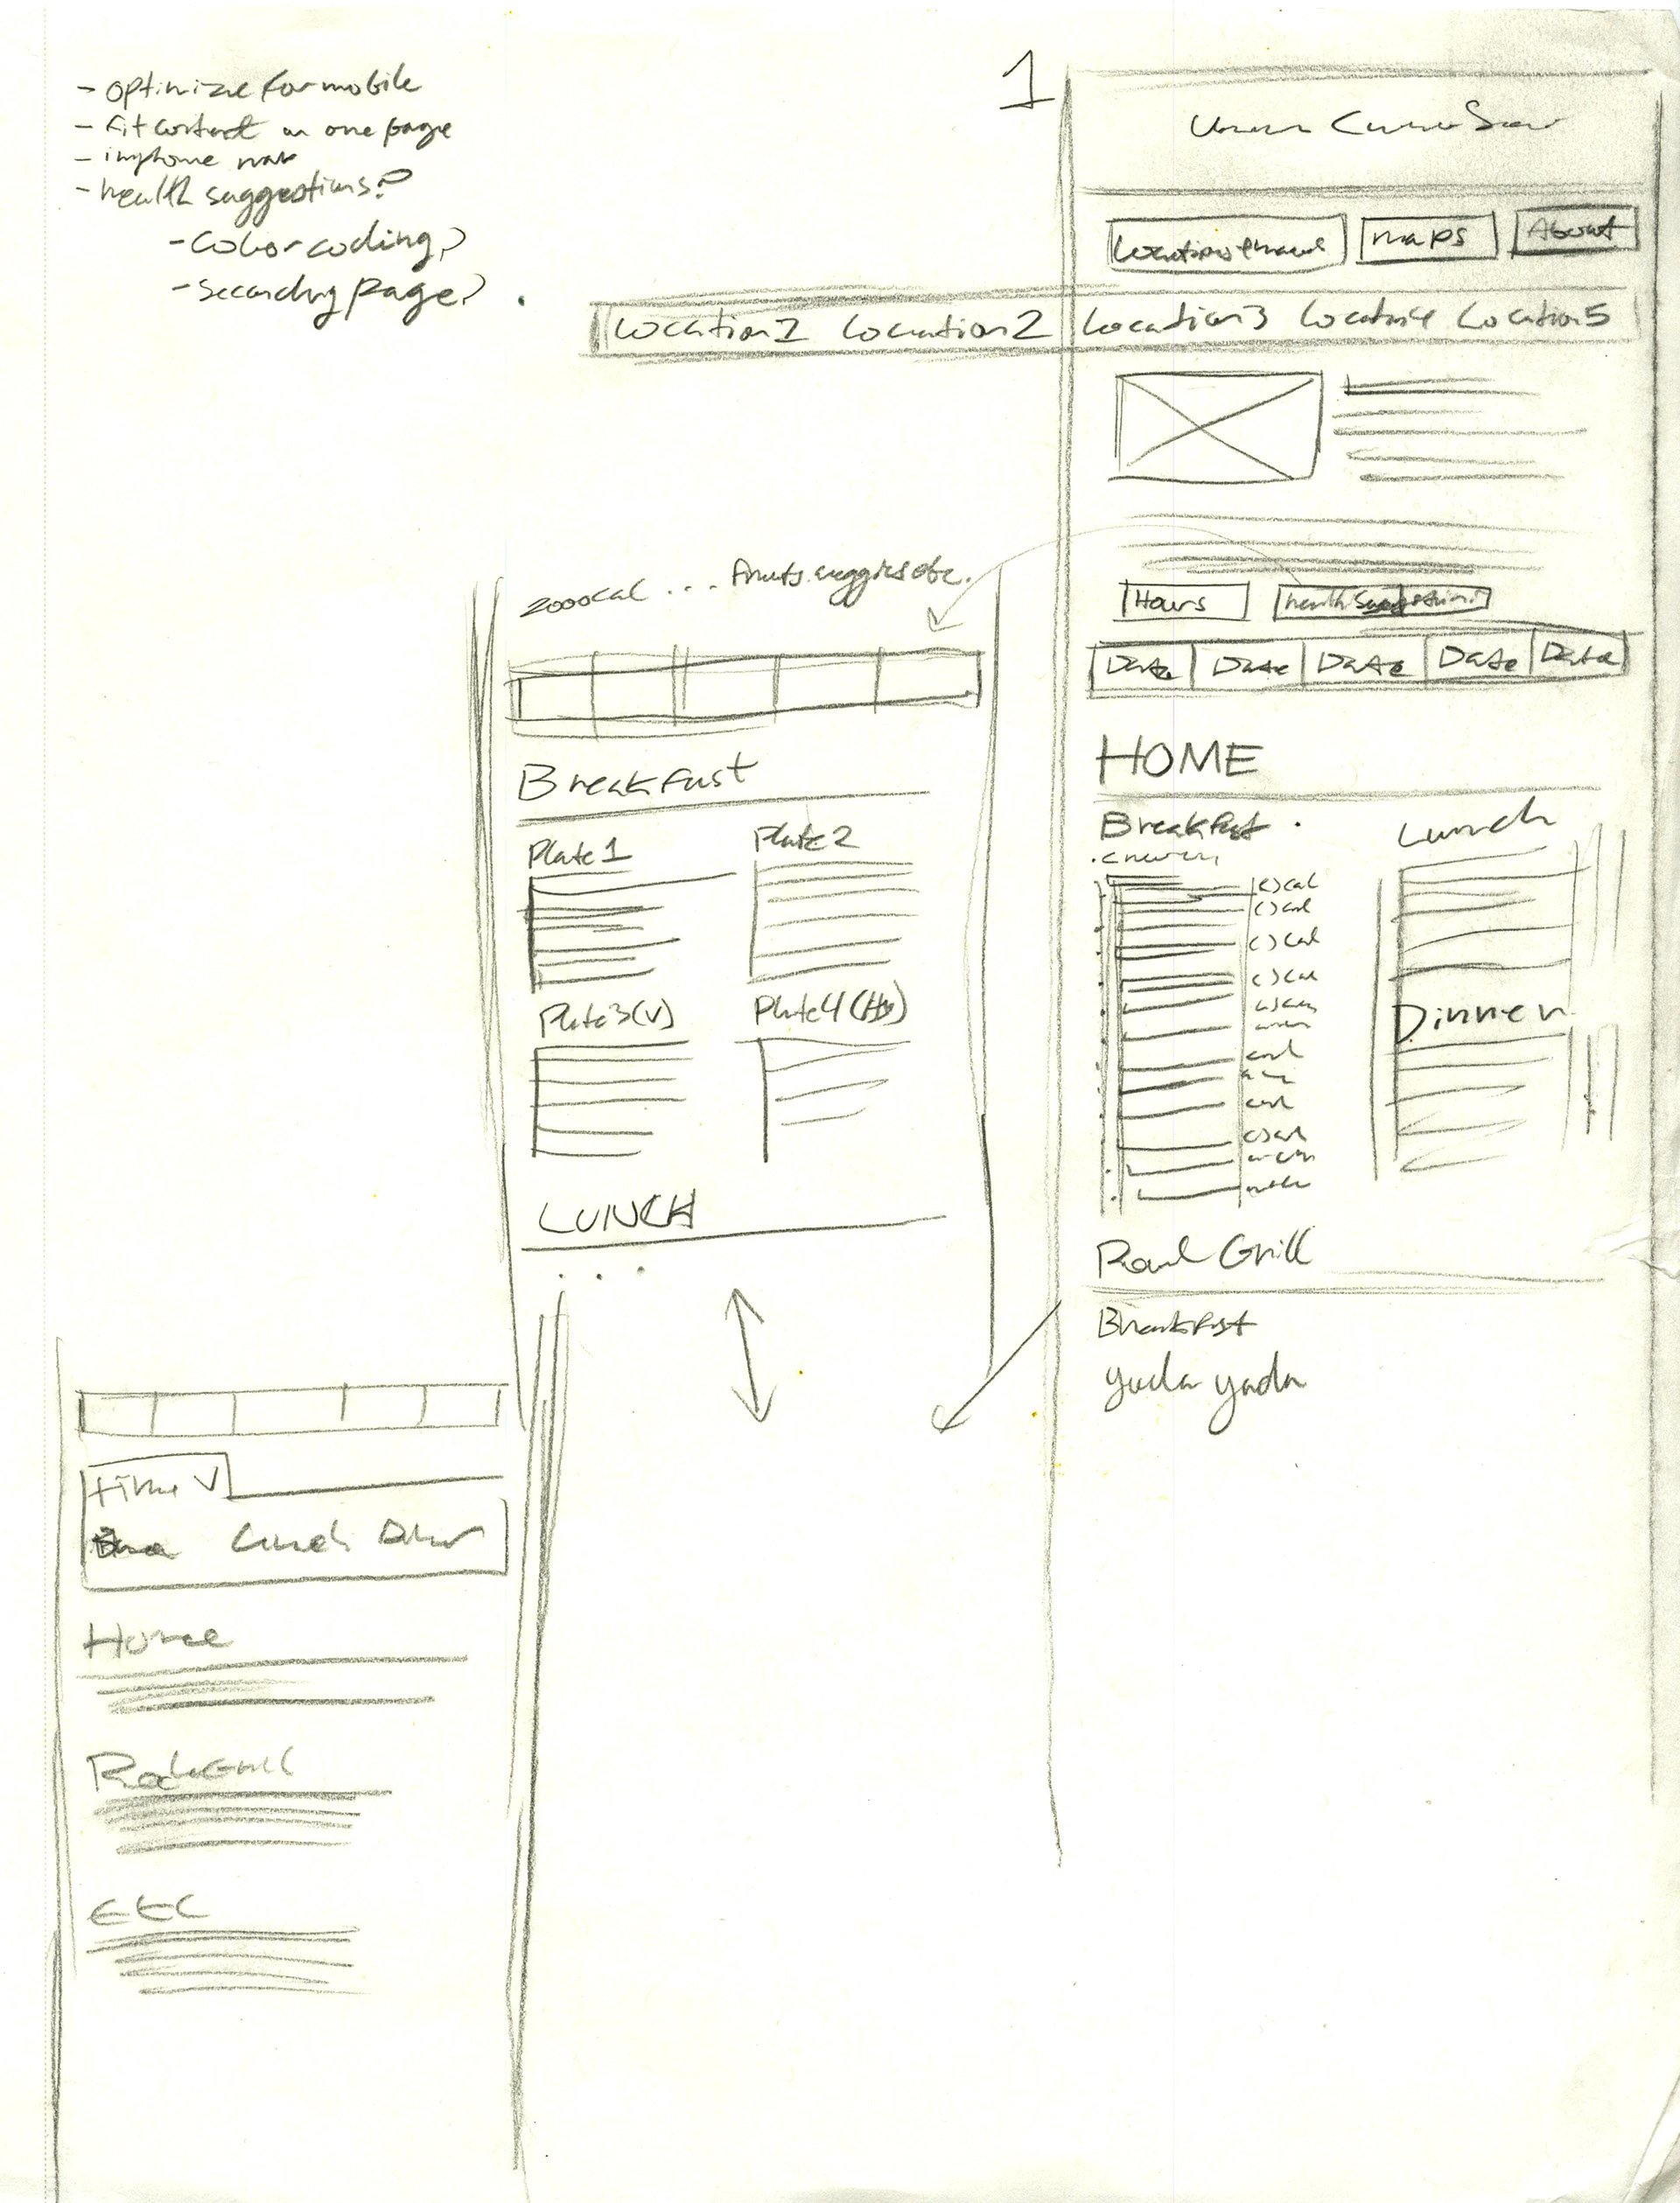 - optimize for mobile
- fit content on one page
- health suggestions?
- color coding?
- secondary page?
1
maps
About
Location1 Location2 Location3 Location4 Location5
Hours
health suggestions
Date Date Date Date Date
HOME
Breakfast
Lunch
( ) cal
( ) cal
( ) cal
( ) cal
Dinner
Grill
Breakfast
yada yada
2000cal ... fruits veggies etc.
Breakfast
Plate 1
Plate 2
Plate 3 (V)
Plate 4
LUNCH
...
time V
Lunch Dinner
Home
ETC